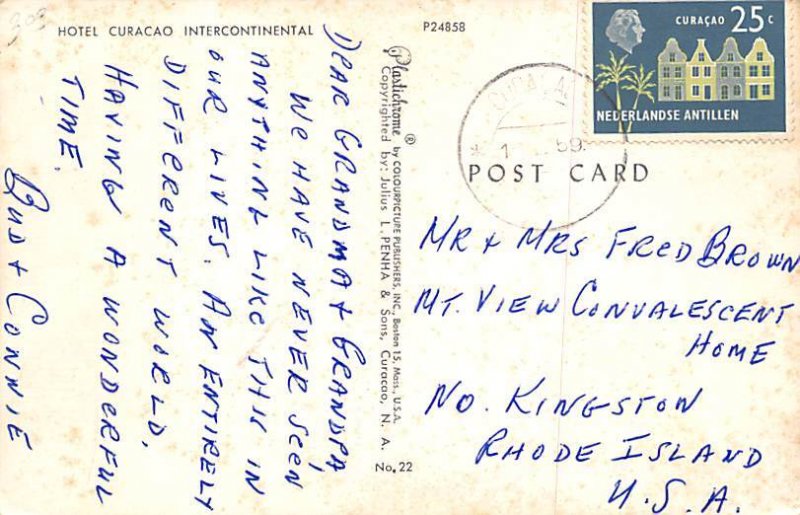 303
HOTEL CURACAO INTERCONTINENTAL
P24858
DEAR GRANDMA + GRANDPA,
WE HAVE NEVER SEEN
ANYTHING LIKE THIS IN
OUR LIVES. AN ENTIRELY
DIFFERENT WORLD.
HAVING A WONDERFUL
TIME.
BUD + CONNIE
Plastichrome ® by COLOURPICTURE PUBLISHERS, INC., Boston 15, Mass., U.S.A.
Copyrighted by: Julius L. PENHA & Sons, Curacao, N. A.
No. 22
CURAÇAO 25 C
NEDERLANDSE ANTILLEN
59
POST CARD
MR + MRS FRED BROWN
MT. VIEW CONVALESCENT
HOME
NO. KINGSTON
RHODE ISLAND
U.S.A.